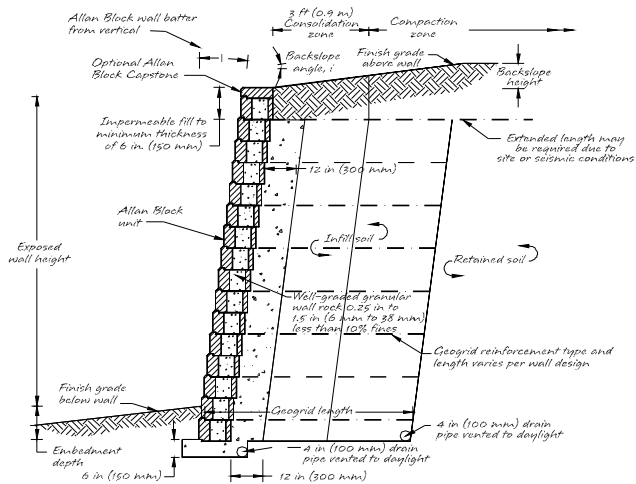 Allan Block wall batter
from vertical
3 ft (0.9 m)
Consolidation
zone
Compaction
zone
Optional Allan
Block Capstone
Backslope
angle, i
Finish grade
above wall
Backslope
height
Impermeable fill to
minimum thickness
of 6 in. (150 mm)
Extended length may
be required due to
site or seismic conditions
12 in (300 mm)
Allan Block
unit
Exposed
wall height
Infill soil
Retained soil
Well-graded granular
wall rock 0.25 in to
1.5 in (6 mm to 38 mm)
less than 10% fines
Geogrid reinforcement type and
length varies per wall design
Finish grade
below wall
Geogrid length
4 in (100 mm) drain
pipe vented to daylight
Embedment
depth
4 in (100 mm) drain
pipe vented to daylight
6 in (150 mm)
12 in (300 mm)